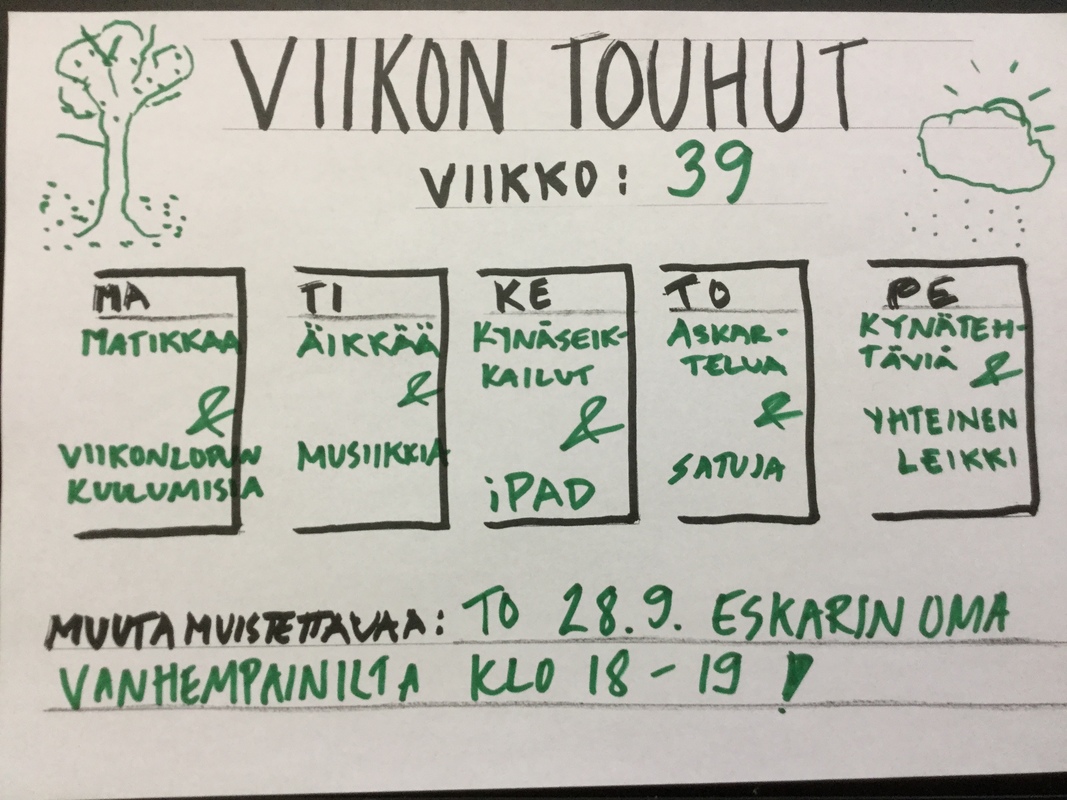 VIIKON TOUHUT
VIIKKO: 39
MA
MATIKKAA
&
VIIKONLOPUN
KUULUMISIA
TI
ÄIKKÄÄ
&
MUSIIKKIA
KE
KYNÄSEIK-
KAILUT
&
iPAD
TO
ASKAR-
TELUA
&
SATUJA
PE
KYNÄTEH-
TÄVIÄ &
YHTEINEN
LEIKKI
MUUTA MUISTETTAVAA: TO 28.9. ESKARIN OMA
VANHEMPAINILTA KLO 18-19 !